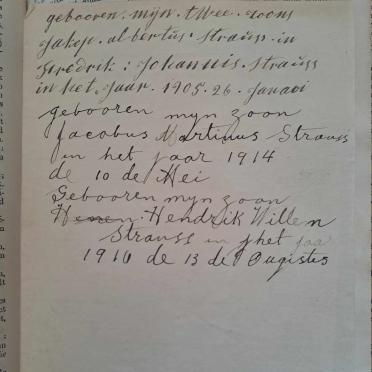 gebooren . mijn . twee . soons
Jakop . albertus . Strauss . in
Fredrik : Johannis . Strauss
in het . Jaar . 1905 . 26 . Janari
gebooren mijn zoon
Jacobus Martinus Strauss
in het jaar 1914
de 10 de Mei
Gebooren mijn zoon
Hendrik Willem
Strauss in het jaa
1916 de 13 de Augistes